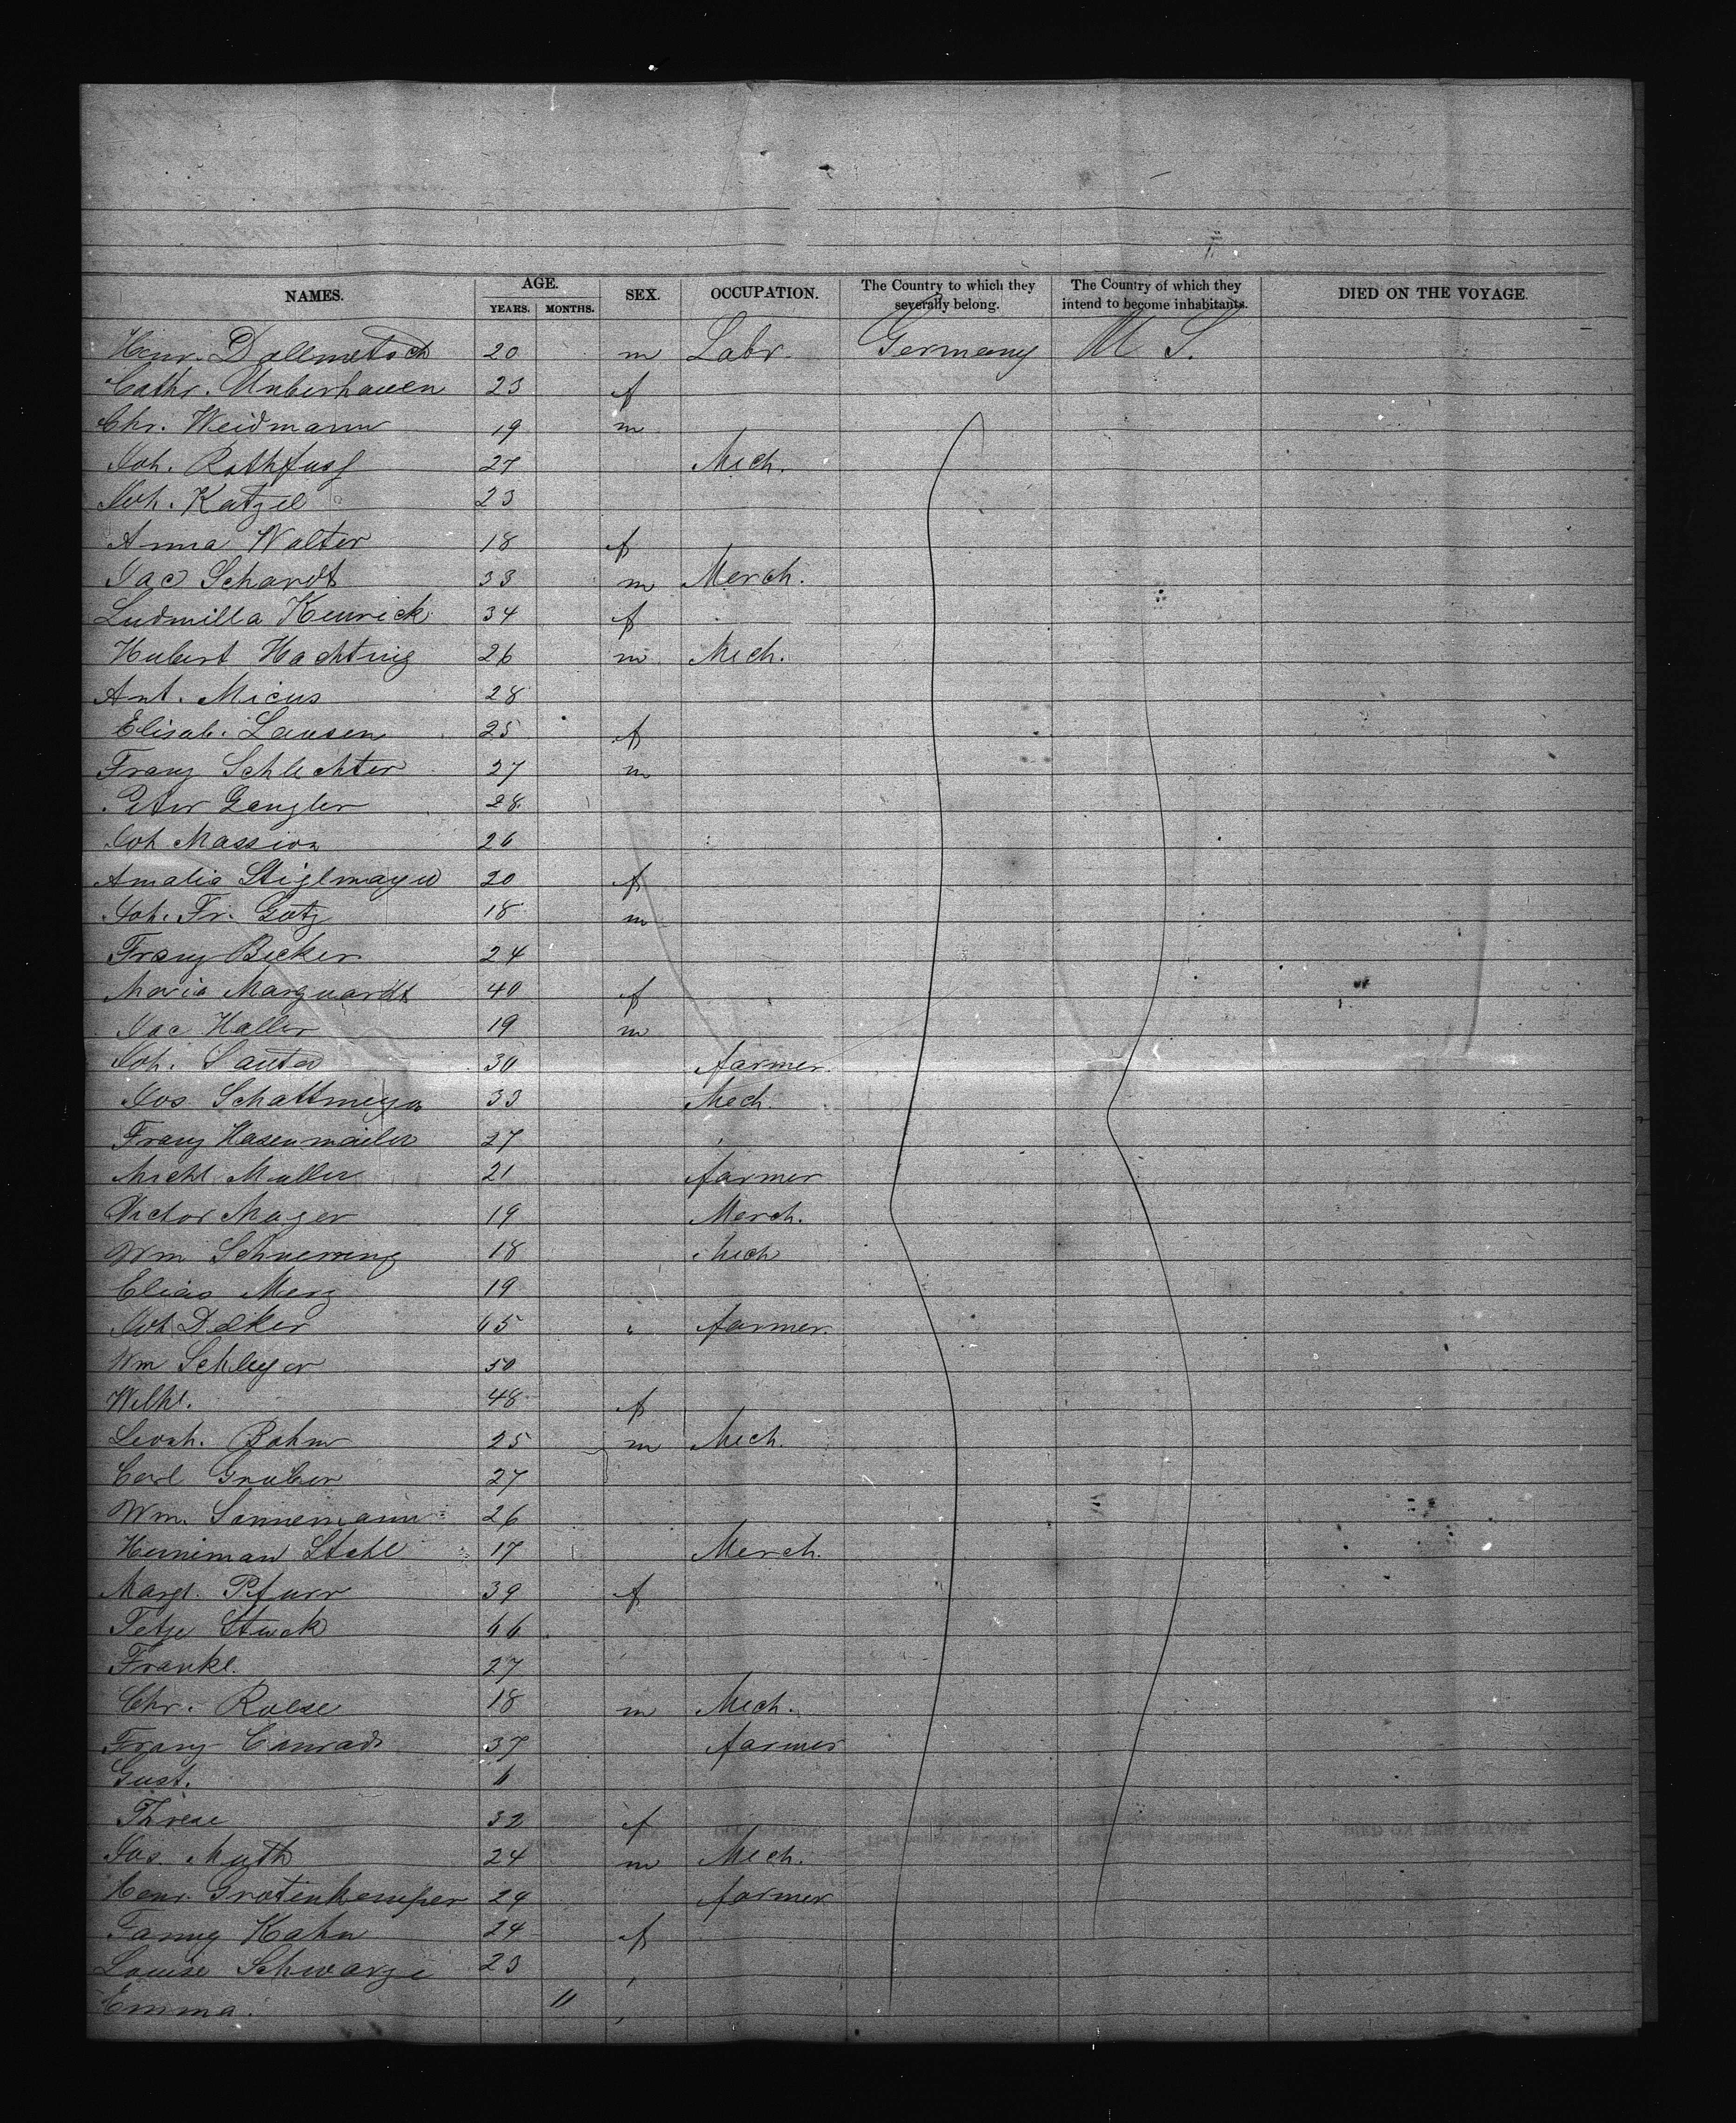 NAMES. AGE. YEARS. MONTHS. SEX. OCCUPATION. The Country to which they severally belong. The Country of which they intend to become inhabitants. DIED ON THE VOYAGE.
Henr. Dollmetsch 20 m Labr. Germany U S.
Cathr. Unberhauen 23 f
Chr. Weidmann 19 m
Joh. Rothfuss 27 Mech.
Joh. Katzel 23
Anna Walter 18 f
Jac Schardt 33 m Merch.
Ludmilla Kenrick 34 f
Hubert Hachting 26 m Mech.
Ant. Micus 28
Elisab. Lausen 25 f
Franz Schlechter 27 m
Peter Gengler 28
Joh Massion 26
Amalia Stiglmayer 20 f
Joh. Fr. Gotz 18 m
Franz Becker 24
Maria Marquardt 40 f
Jac Haller 19 m
Joh. Sauter 30 farmer.
Jos Schattmeyer 33 Mech.
Franz Hasenmaeiler 27
Michl Muller 21 farmer
Victor Mayer 19 Merch.
Wm 18 Mech
Elias Merz 19
Joh Decker 65 farmer.
Wm Schleyer 50
Wilh. 48 f
Leonh. Bohm 25 m Mech.
Carl Gruber 27
Wm. Sonnemann 26
Heineman Stahl 17 Merch.
Margt. Pfurr 39 f
Tetje Stuck 66
Frankl. 27
Chr. Roese 18 m Mech.
Franz Conrad 37 farmer
Gust. 6
Threse 32 f
Jos. Muth 24 m Mech.
Henr. Grotenkemper 24 farmer
Fanny Kahn 24 f
Louise Schwarze 23
Emma. 11